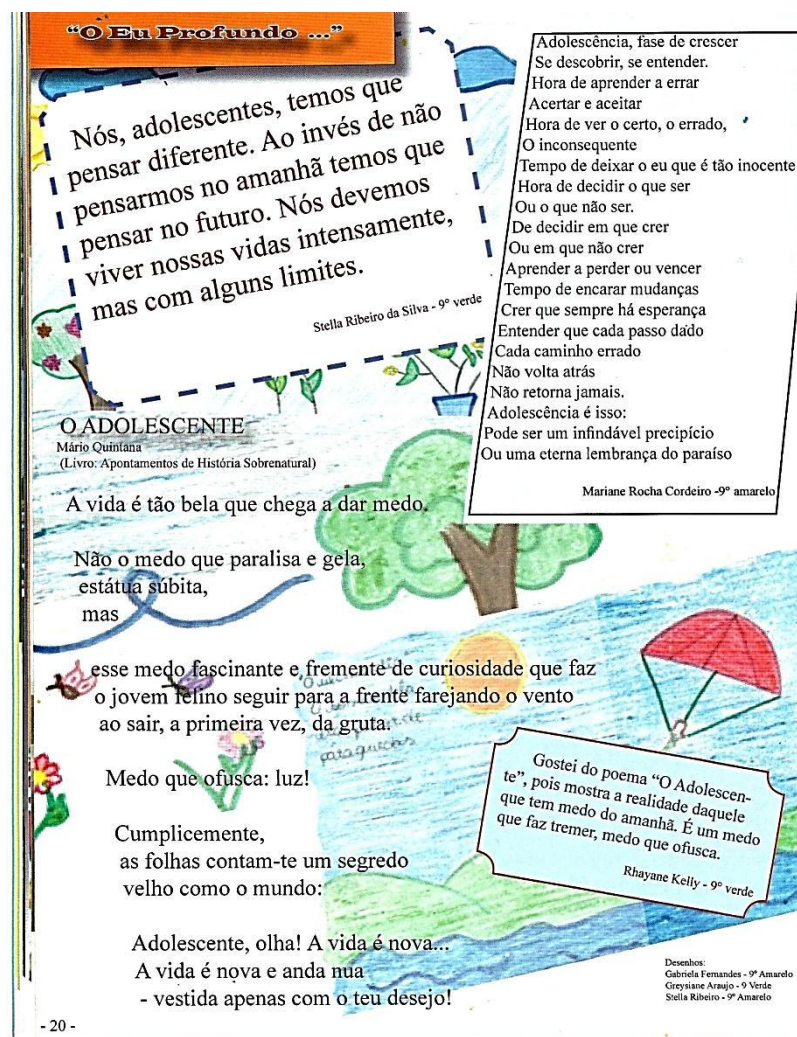 “O Eu Profundo ...”
Nós, adolescentes, temos que
pensar diferente. Ao invés de não
pensarmos no amanhã temos que
pensar no futuro. Nós devemos
viver nossas vidas intensamente,
mas com alguns limites.
Stella Ribeiro da Silva - 9º verde
Adolescência, fase de crescer
Se descobrir, se entender.
Hora de aprender a errar
Acertar e aceitar
Hora de ver o certo, o errado,
O inconsequente
Tempo de deixar o eu que é tão inocente
Hora de decidir o que ser
Ou o que não ser.
De decidir em que crer
Ou em que não crer
Aprender a perder ou vencer
Tempo de encarar mudanças
Crer que sempre há esperança
Entender que cada passo dado
Cada caminho errado
Não volta atrás
Não retorna jamais.
Adolescência é isso:
Pode ser um infindável precipício
Ou uma eterna lembrança do paraíso
Mariane Rocha Cordeiro -9º amarelo
O ADOLESCENTE
Mário Quintana
(Livro: Apontamentos de História Sobrenatural)
A vida é tão bela que chega a dar medo.
Não o medo que paralisa e gela,
estátua súbita,
mas
esse medo fascinante e fremente de curiosidade que faz
o jovem felino seguir para a frente farejando o vento
ao sair, a primeira vez, da gruta.
Medo que ofusca: luz!
Cumplicemente,
as folhas contam-te um segredo
velho como o mundo:
Adolescente, olha! A vida é nova...
A vida é nova e anda nua
- vestida apenas com o teu desejo!
paraquedas
Gostei do poema “O Adolescen-
te”, pois mostra a realidade daquele
que tem medo do amanhã. É um medo
que faz tremer, medo que ofusca.
Rhayane Kelly - 9º verde
Desenhos:
Gabriela Fernandes - 9º Amarelo
Greysiane Araujo - 9 Verde
Stella Ribeiro - 9º Amarelo
- 20 -